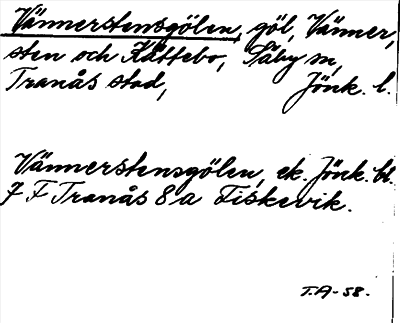 Vännerstensgölen, göl, Vänner,
sten och Kättebo, Säby sn,
Tranås stad, Jönk. l.
Vännerstensgölen, ek. Jönk. bl.
7 F Tranås 8 a Fiskevik.
T.A-58.